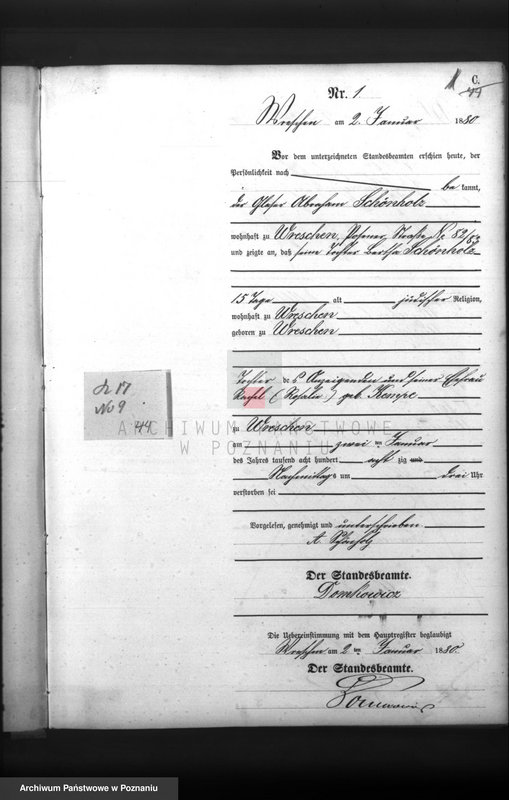 C.
1
44
Nr. 1
Wreschen am 2. Januar 1880
Vor dem unterzeichneten Standesbeamten erschien heute, der
Persönlichkeit nach
be kannt,
der Glaser Abraham Schönholz
wohnhaft zu Wreschen, Posener Straße №
und zeigte an, daß seine Tochter Bertha Schönholz
15 Tage alt jüdischer Religion,
wohnhaft zu Wreschen
geboren zu Wreschen
Tochter des Anzeigenden und seiner Ehefrau
Rachel (Rosalie) geb. Kempe
zu Wreschen
am zwei ten Januar
des Jahres tausend acht hundert acht zig und
Nachmittags um drei Uhr
verstorben sei
Vorgelesen, genehmigt und unterschrieben
A. Schönholz
Der Standesbeamte.
Domkowicz
Die Uebereinstimmung mit dem Hauptregister beglaubigt
Wreschen am 2 ten Januar 1880.
Der Standesbeamte.
№ 9
44
ARCHIWUM PAŃSTWOWE
W POZNANIU
Archiwum Państwowe w Poznaniu